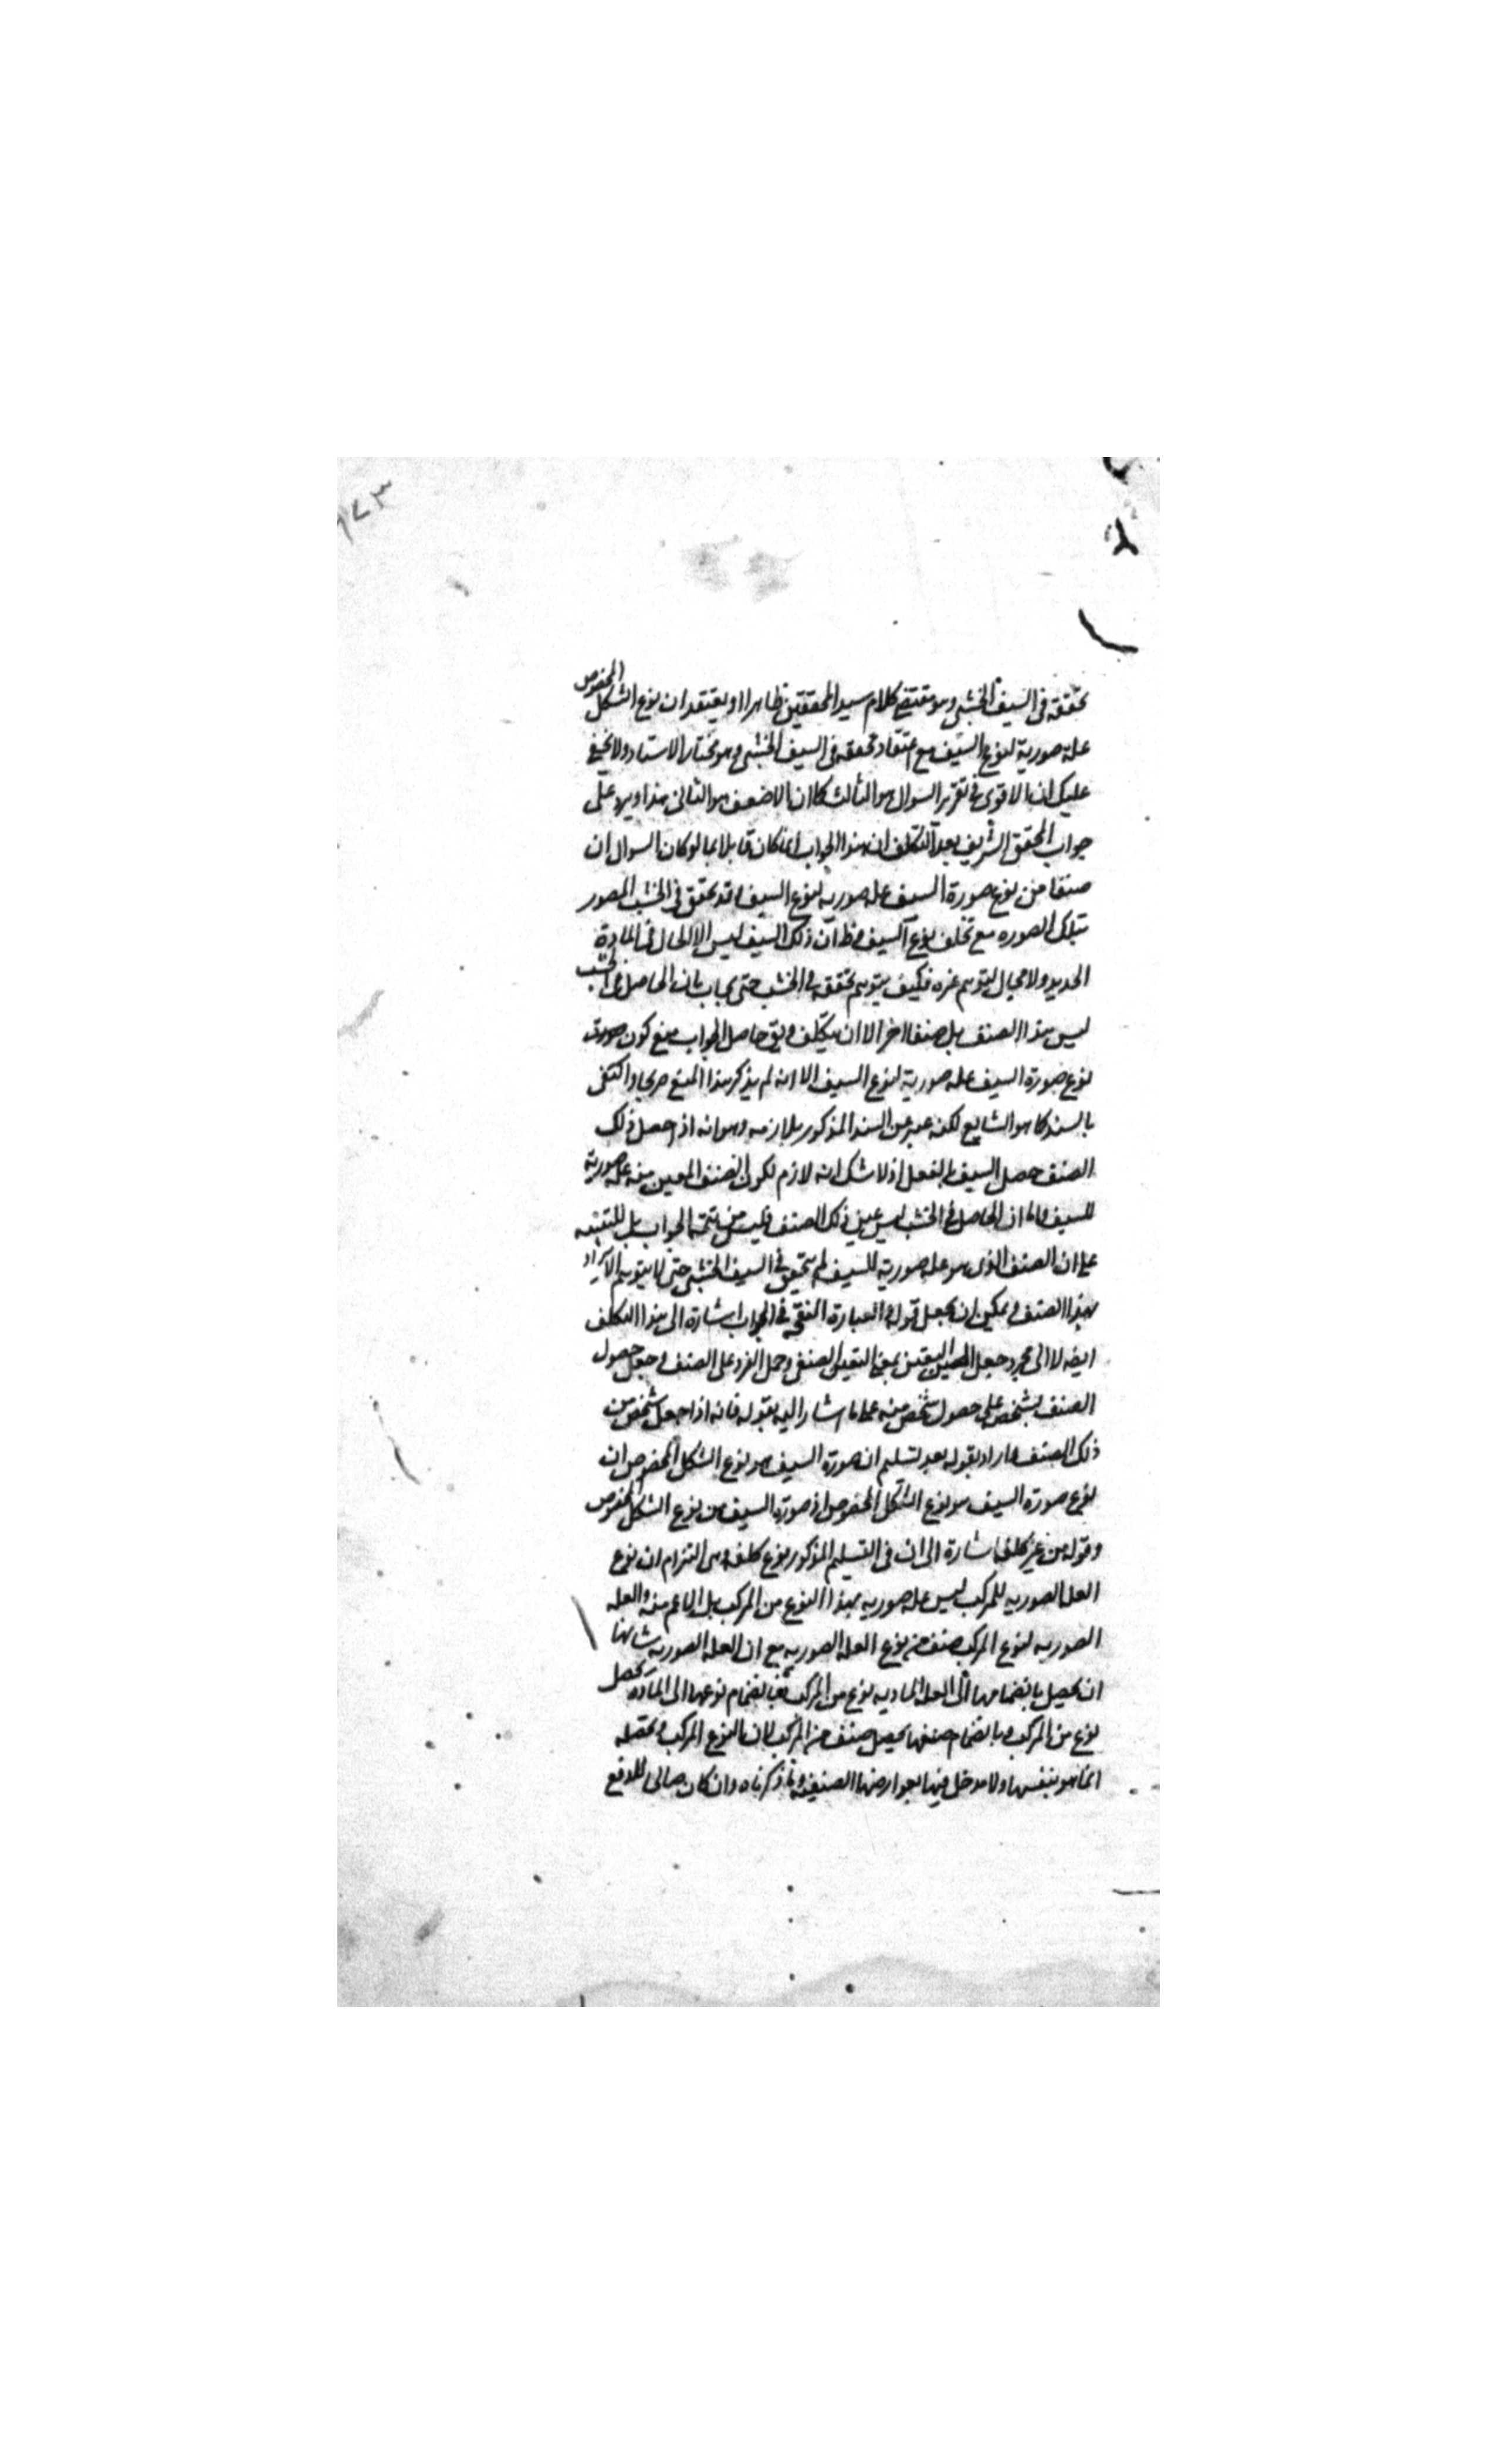 ١٧٣
تحققه فى السيف الخشبى وهو مقتضى كلام سيد المحققين ظاهرا او يعتقد ان نوع الشكل المخصوص
علة صورية لنوع السيف مع اعتقاد تحققه فى السيف الخشبى وهو مختار الاستاد ولا يخفى
عليك ان الاقوى فى تقرير السوال هو الثالث كما ان الاضعف هو الثانى هذا ويرد على
جواب المحقق الشريف بعد التكلف ان هذا الجواب انما كان قابلا بما لو كان السوال ان
صنفا من نوع صورة السيف علة صورية لنوع السيف وقد تحقق فى الخشب المصور
بتلك الصوره مع تخلف نوع السيف وظ ان ذلك السيف ليس الا الحال فى المادة
الحديد ولا مجال لتوهم غيره فكيف يتوهم تحققه فى الخشب حتى يجاب بان الحاصل فى الخشب
ليس هذا الصنف بل صنفا اخر الا ان يتكلف ويق حاصل الجواب منع كون صورة
نوع صورة السيف علة صورية لنوع السيف الا انه لم يذكر هذا المنع صريحا واكتفى
بالسند كما هو الشايع لكنه عبر عن السند المذكور بلازمه وهو انه اذ احصل ذلك
الصنف حصل السيف بالفعل اذ لا شك انه لازم لكون الصنف المعين منه علة صورية
للسيف واما ان الحاصل فى الخشب ليس عين ذلك الصنف فليس من تتمة الجواب بل للتنبيه
على ان الصنف الذى هو علة صورية للسيف لم يتحقق فى السيف الخشبى حتى لا يتوهم الايراد
بهذا الصنف ويمكن ان يجعل قوله العبارة فى الجواب اشارة الى هذا التكلف
ايضا لا الى مجرد جعل التعين بمعنى التعين الصنفى وحمل الفرد على الصنف وجعل حصول
الصنف بشخص على حصول شخص منه على ما اشار اليه بقوله فانه اذا جعل شخص من
ذلك الصنف واراد بقوله بعد تسليم ان صورة السيف هو نوع الشكل المخصوص ان
نوع صورة السيف هو نوع الشكل المخصوص اذ صورة السيف من نوع الشكل المخصوص
وقوله من غير كلفة اشارة الى ان فى التسليم المذكور نوع كلفة وهى التزام ان نوع
العلة الصورية للمركب ليس علة صورية بهذا النوع من المركب بل لاعم منه والعلة
الصورية لنوع المركب صنف من نوع العلة الصورية مع ان العلة الصورية شانها
ان يحصل بانضمامها الى العلة المادية نوع من المركب بانضمام نوعها الى المادة يحصل
نوع من المركب وبانضمام صنفها يحصل صنف من المركب لان النوع المركب
انما هو بنفسها ولا مدخل فيها بعوارضها الصنفية وما ذكرناه وان كان للدفع